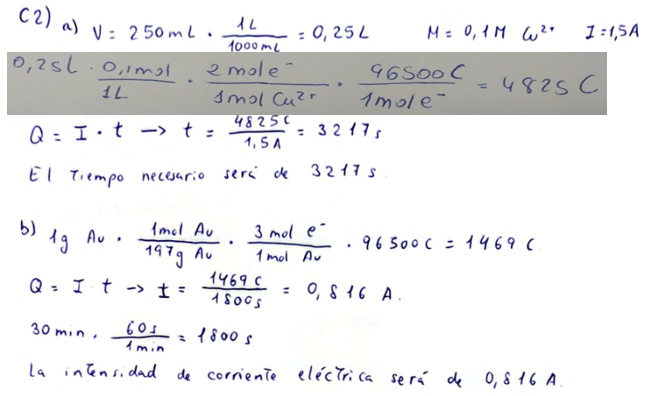 C2) a) V = 250 mL · 1L / 1000mL = 0,25L M = 0,1M Cu²⁺ I = 1,5A
0,25L · 0,1mol / 1L · 2 mol e⁻ / 1mol Cu²⁺ · 96500C / 1mol e⁻ = 4825 C
Q = I · t → t = 4825C / 1,5A = 3217s
El tiempo necesario será de 3217s.
b) 1g Au · 1mol Au / 197g Au · 3 mol e⁻ / 1mol Au · 96500C = 1469 C
Q = I · t → I = 1469 C / 1800s = 0,816 A.
30 min · 60s / 1min = 1800 s
La intensidad de corriente eléctrica será de 0,816A.